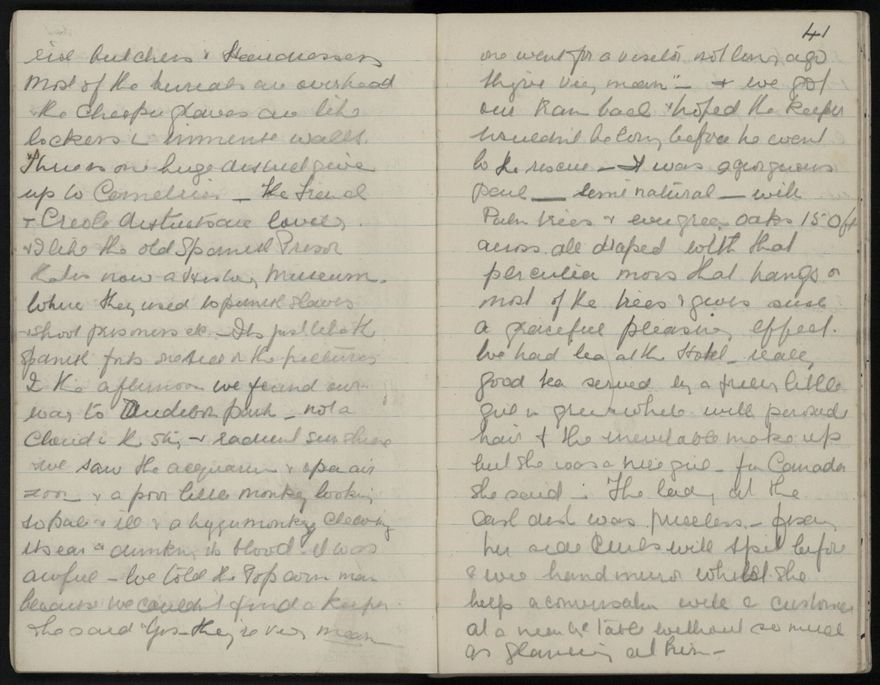 like butchers & Hairdressers
Most of the burials are overhead
the cheaper graves are like
lockers in immense walls.
There is one huge district given
up to Cemeteries _ The French
& Creole districts are lovely
& I like the old Spanish Prison
that is now a History Museum.
Where they used to punish slaves
& shoot prisoners etc _ Its just like the
Spanish forts one sees in the pictures
In the afternoon we found our
way to Audubon park _ not a
cloud in the sky & radiant sunshine
we saw the acquarium & open air
zoo & a poor little monkey looking
so pale & ill & a bigger monkey chewing
its ear & drinking its blood. It was
awful _ We told the Pop corn man
because we couldn't find a keeper.
He said "Yes _ they're very mean
41
one went for a visitor not long ago
they're very mean" _ & we got
our tram back & hoped the keeper
wouldn't be long before he went
to the rescue _ It was a gorgeous
park _ semi natural _ with
Palm trees & evergreen oaks 150 ft
across all draped with that
perculiar moss that hangs on
most of the trees & gives such
a graceful pleasing effect.
We had tea at the Hotel _ really
good tea served by a pretty little
girl in green & white with
hair & the inevitable make up
but she was a nice girl _ from Canada
she said _ The lady at the
cash desk was priceless _ fixing
her side curls with spit before
a wee hand mirror whilst she
kept a conversation with a customer
at a near by table without so much
as glancing at him _